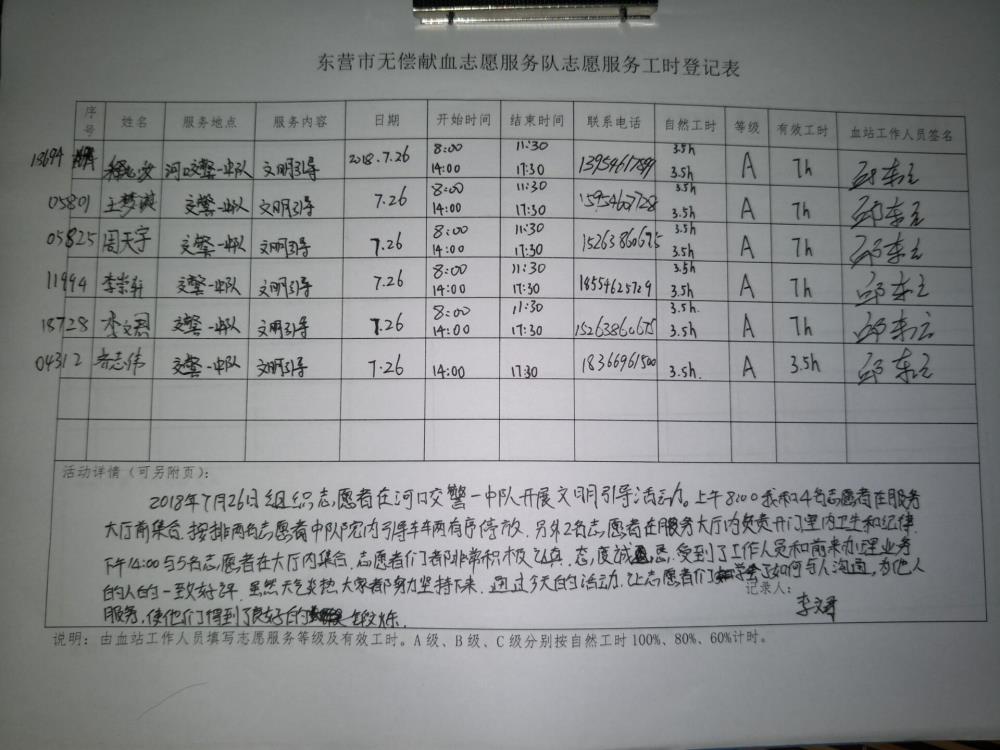 东营市无偿献血志愿服务队志愿服务工时登记表
序号 姓名 服务地点 服务内容 日期 开始时间 结束时间 联系电话 自然工时 等级 有效工时 血站工作人员签名
18694 河口交警一中队 文明引导 2018.7.26 8:00 14:00 11:30 17:30 3.5h 3.5h A 7h
05801 王梦琪 交警一中队 文明引导 7.26 8:00 14:00 11:30 17:30 15954607728 3.5h 3.5h A 7h
05825 周天宇 交警一中队 文明引导 7.26 8:00 14:00 11:30 17:30 15263860675 3.5h 3.5h A 7h
11994 李崇轩 交警一中队 文明引导 7.26 8:00 14:00 11:30 17:30 18554625729 3.5h 3.5h A 7h
18728 李文君 交警一中队 文明引导 7.26 8:00 14:00 11:30 17:30 15263860675 3.5h 3.5h A 7h
04312 志伟 交警一中队 文明引导 7.26 14:00 17:30 18366961500 3.5h. A 3.5h
活动详情(可另附页):
2018年7月26日组织志愿者在河口交警一中队开展文明引导活动。上午8:00我和4名志愿者在服务
大厅前集合,按排两名志愿者中队院内引导车车两有序停放,另外2名志愿者在服务大厅内负责开门室内卫生和纪律
下午14:00与5名志愿者在大厅内集合,志愿者们都非常积极认真,态度诚恳,受到了工作人员和前来办理业务
的人的一致好评,虽然天气炎热大家都努力坚持下来,通过今天的活动,让志愿者们学会了如何与人沟通,为他人
服务,使他们得到了良好的锻炼.
记录人:
李文君
说明:由血站工作人员填写志愿服务等级及有效工时。A级、B级、C级分别按自然工时100%、80%、60%计时。